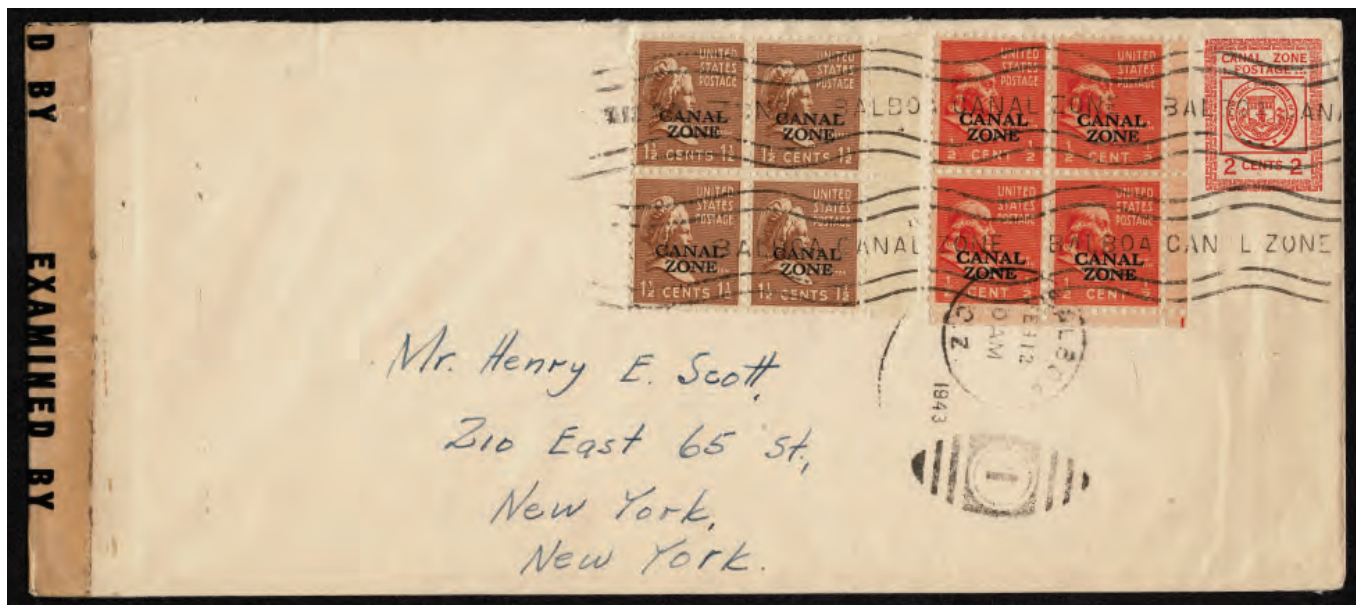 D BY EXAMINED BY
UNITED STATES POSTAGE
CANAL ZONE
1½ CENTS 1½
UNITED STATES POSTAGE
CANAL ZONE
1½ CENTS 1½
UNITED STATES POSTAGE
CANAL ZONE
½ CENT ½
UNITED STATES POSTAGE
CANAL ZONE
½ CENT ½
CANAL ZONE
POSTAGE
2 CENTS 2
BALBOA CANAL ZONE BALBOA CANA
UNITED STATES POSTAGE
CANAL ZONE
1½ CENTS 1½
UNITED STATES POSTAGE
CANAL ZONE
1½ CENTS 1½
UNITED STATES POSTAGE
CANAL ZONE
½ CENT ½
UNITED STATES POSTAGE
CANAL ZONE
½ CENT ½
BALBOA CANAL ZONE BALBOA CAN L ZONE
BALBOA
FEB 12
AM
C.Z.
1943
1
Mr. Henry E. Scott,
210 East 65 St.,
New York,
New York.